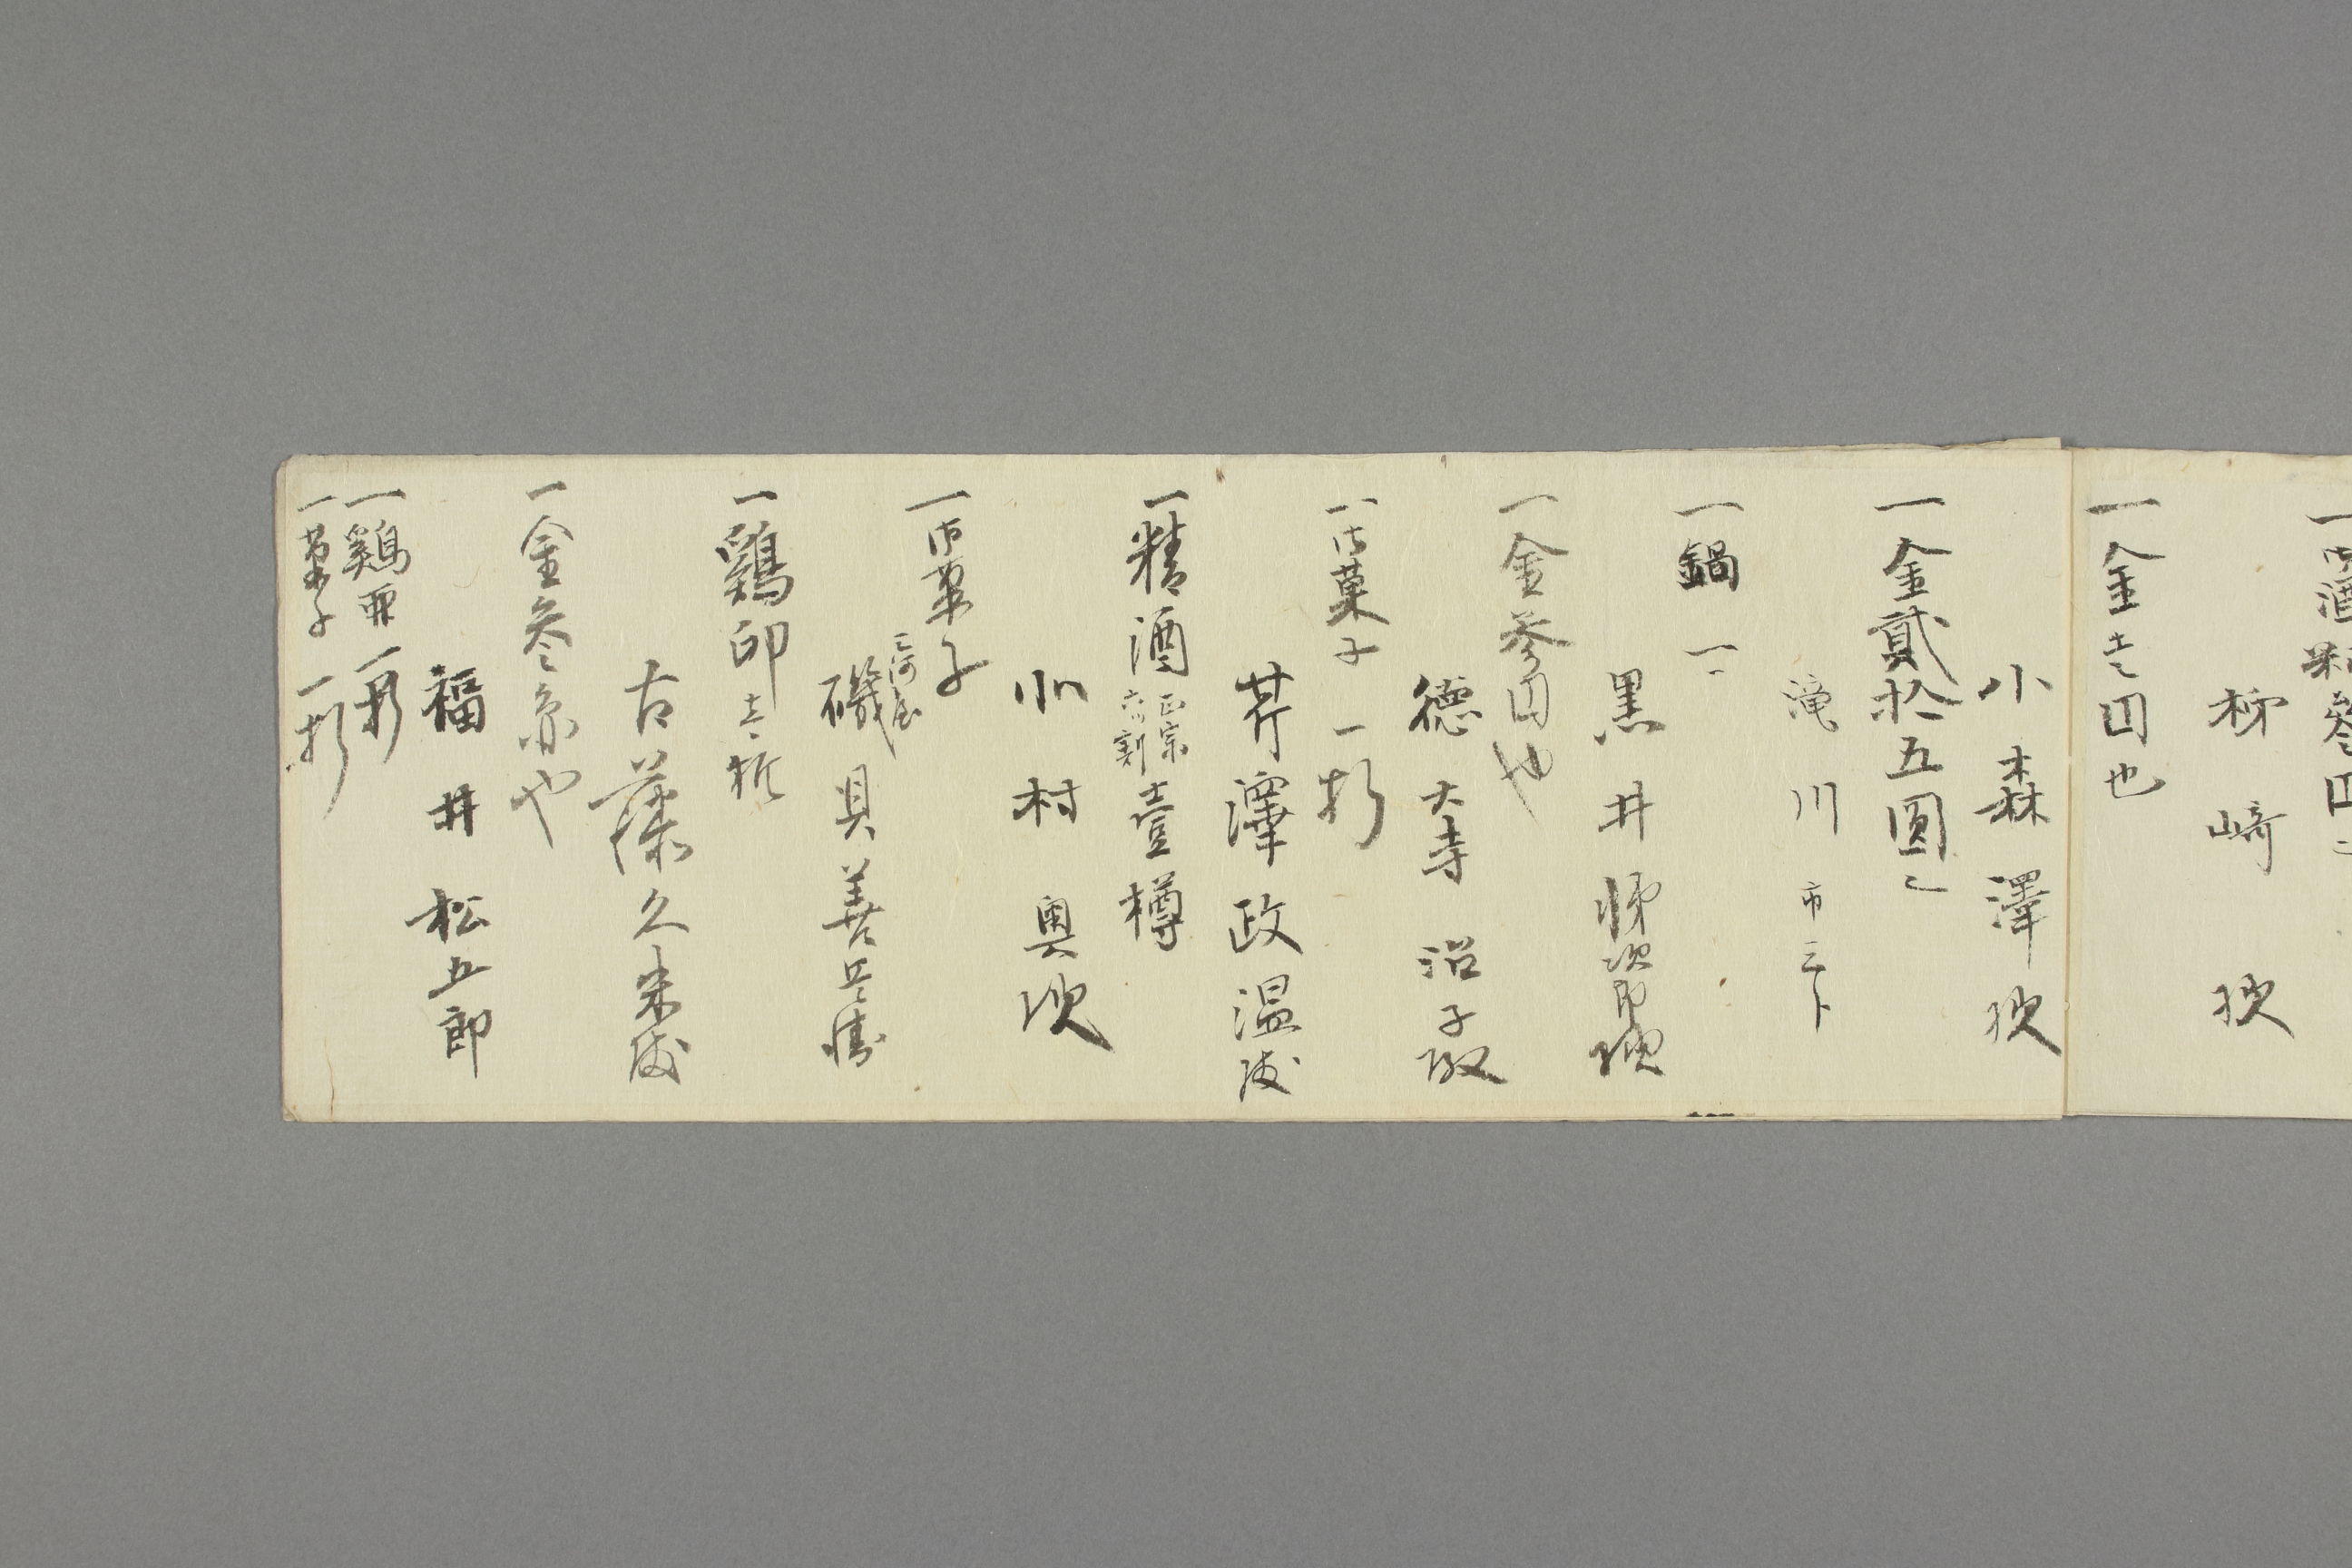 一御酒料參円
柳﨑様
一金壱円也
小森澤様
一金貳拾五圓
滝川市三卜
一鍋 一
黒井悌次郎様
一金参円也
德大寺沼子殿
一御菓子一折
芹澤政温殿
一精酒 正宗 壹樽
小村奥次
一御菓子
三河屋
磯貝善兵衛
一鶏卵壱折
古藤久米殿
一金参京也
福井松五郎
一鶏卵一折
一菓子一折